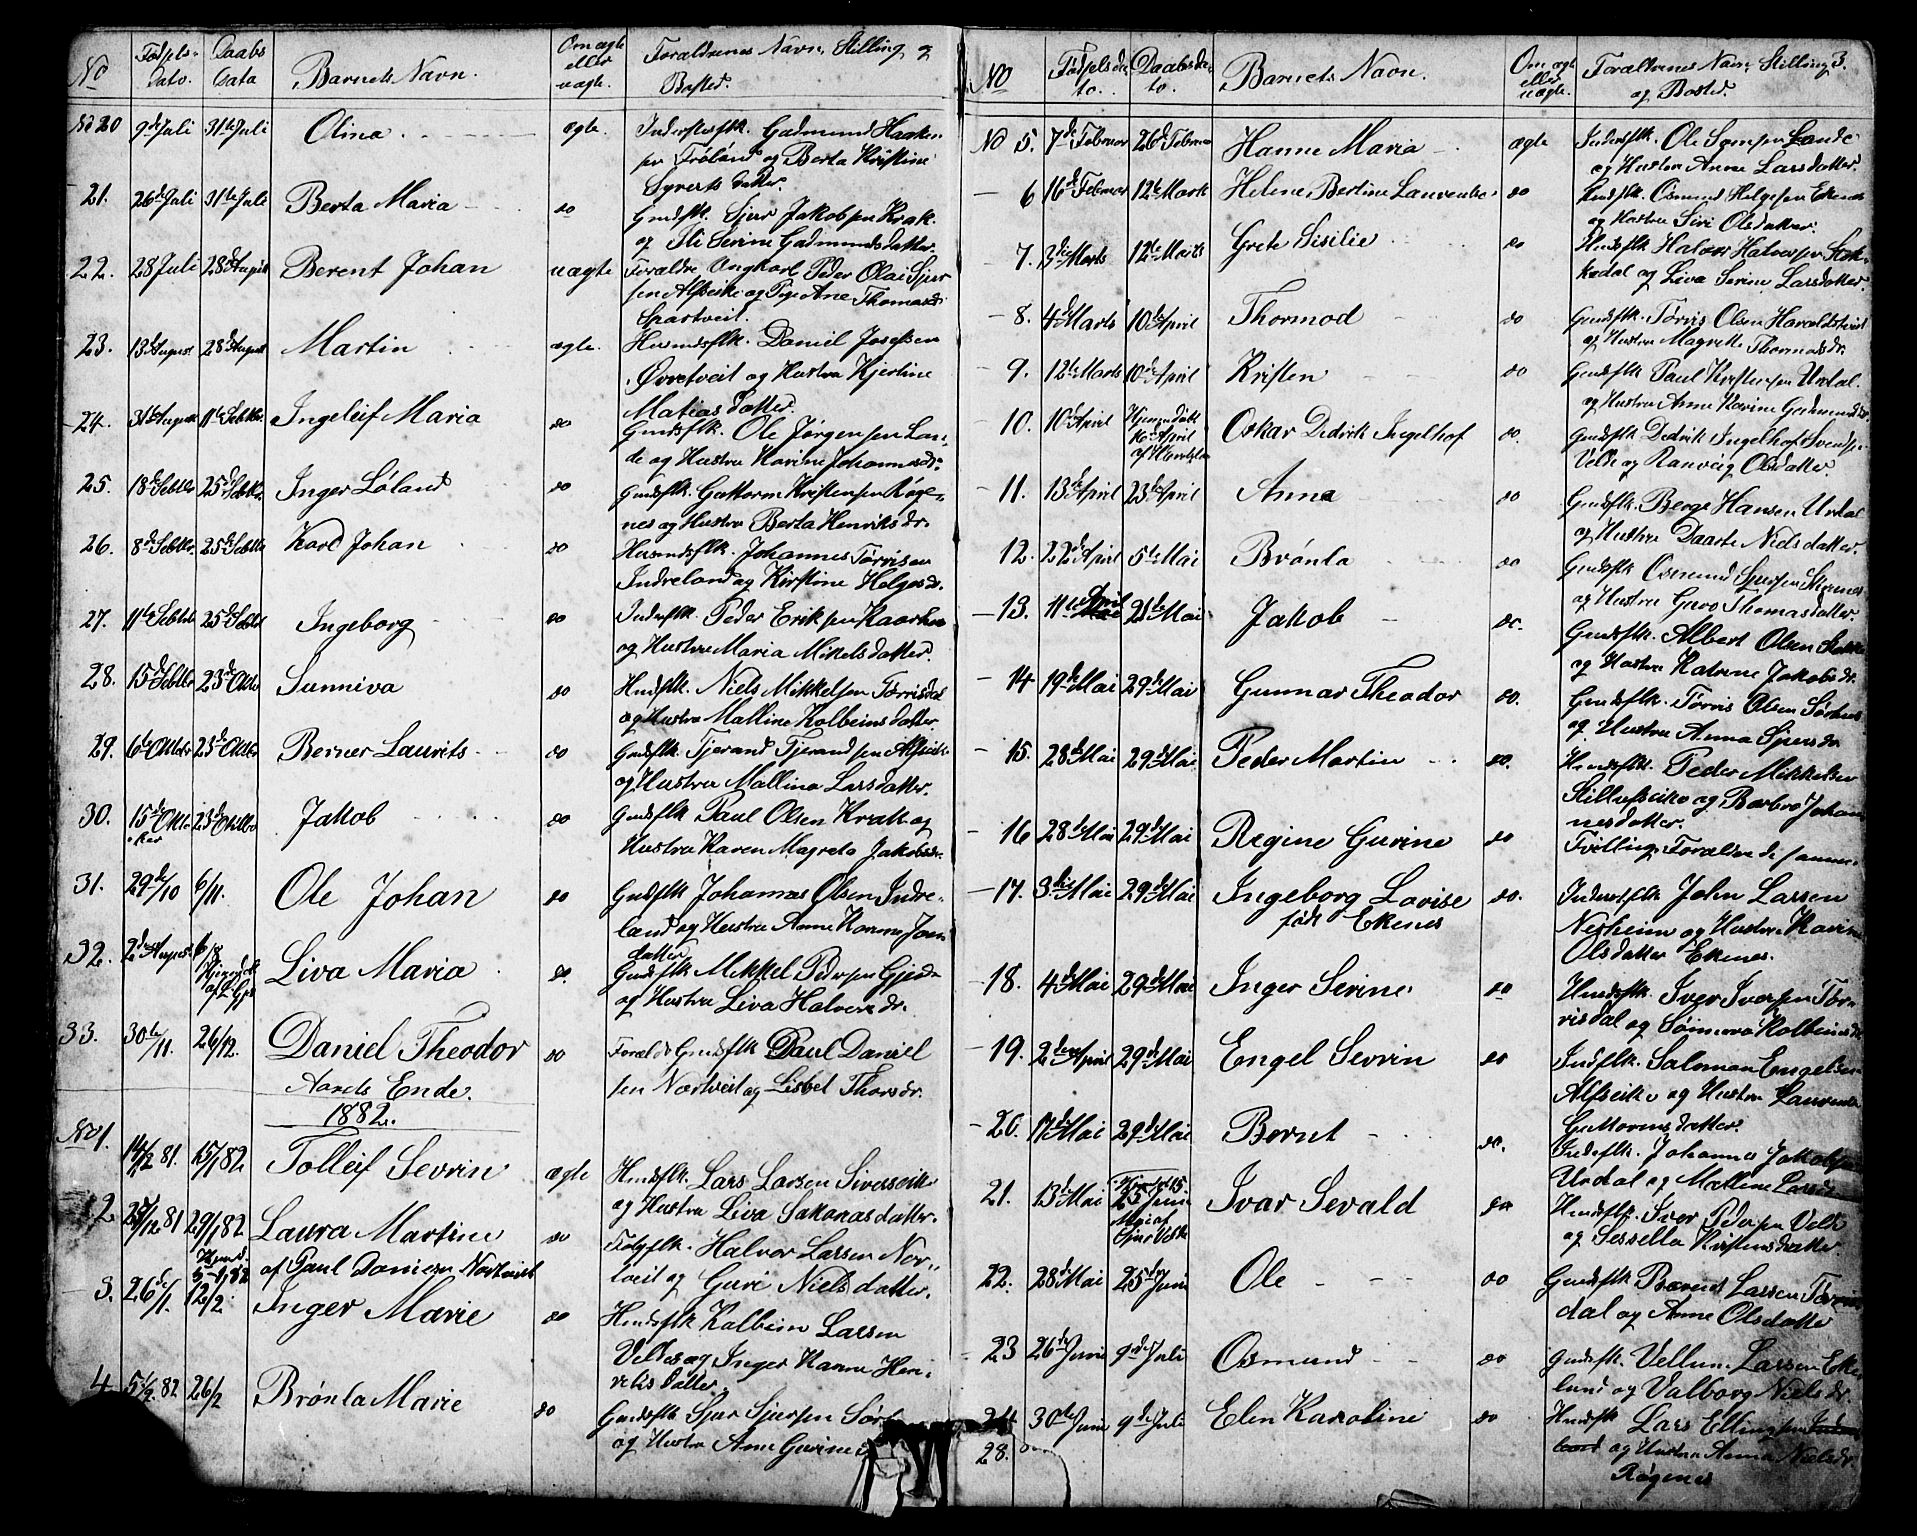 No
Fødsels-
Dato.
Daabs
Data
Barnets Navn.
Om ægte
eller
uægte.
Forældrenes Navn, Stilling og
Bosted.
No 20 9de Juli 31te Juli Olina ægte. Inderstesflk. Gudmund Haaken-
sen Frøland og Berta Kristine
Syverts datter.
21. 26de Juli 31te Juli Berta Maria do Gmdsflk. Sjur Jakobsen Krak.
og Eli Serine Gudmundsdatter.
22. 28 Juli 28de August Berent Johan uægte Forældre Ungkarl Peder Olai Sjur
sen Alfseike og Pige Ane Thomasdr
Spartveit.
23. 13de August 28de August Martin ægte. Husmdsflk. Daniel Josefsen
Øvretveit og Hustru Kjerstine
Matias datter.
24. 31te August 11te Sebtbr. Ingeleif Maria do Gmdsflk. Ole Jørgensen Lan-
de og Hustru Karine Johannesdr.
25. 18de Sebtbr 25de Sebtbr. Inger Løland do Gmdsflk. Guttorm Kristensen Røge-
nes og Hustru Berta Henriksdr.
26. 8de Sebtbr. 25de Sebtbr Karl Johan do Husmdsflk. Johannes Tørrisen
Indreland og Kirstine Helgesdr.
27. 11te Sebtbr 25de Sebtbr Ingeborg do Inderflk. Peder Eriksen Kaarhus
og Hustru Maria Mikelsdatter.
28. 15de Sebtbr 23de Oktbr Sunniva do Hmdsflk. Niels Mikkelsen Tørrisdal
og Hustru Malline Kolbeinsdatter
29. 6te Oktbr 23de Oktbr Berner Laurits do Gmdsflk. Tjerand Tjerandsen Alfseike
og Hustru Mallina Larsdatter.
30. 15de Okto
ber 23de Oktbr Jakob do Gmdsflk Paul Olsen Krak og
Hustru Karen Magreta Jakobsdr.
31. 29de/10 6/11. Ole Johan do Gmdsflk Johannes Olsen Indre-
land og Hustru Anne Karine Jons
datter
32. 2den August 6/8
Hjemdøbt
af L. Gjer Liva Maria do. Gmdsflk Mikkel Pedersen Gjerde
og Hustru Liva Halversdr.
33. 30te/11. 26/12. Daniel Theodor do Forældr Gmdsflk Paul Daniel
sen Nordtveit og Lisbet Thorsdr.
Aarets Ende.
1882.
No 1. 14/12 81. 15/1 82. Tolleif Sevrin ægte Hmdsflk. Lars Larsen Siverseik
og Hustru Liva Sakonasdatter.
2. 25/12 81 29/1 82 Laura Martine do Folgflk. Halvor Larsen Nor-
tveit og Guri Nielsdatter.
Hjemd.
5-1/82 af Paul Danielsen Nortveit
3. 26de/1. 12/2. Inger Marie do Hmdsflk Kolbein Larsen
Velde og Inger Karine Hen-
riks datter.
4. 5/2. 82 26/2 Brønla Marie do Gmdsflk Sjur Sjursen Sør
og Hustru Ane Gurine
No
Fødselsda-
to.
Daabsda-
to.
Barnets Navn.
Om ægte
eller
uægte.
Forældrenes Navn Stilling 3.
og Bosted.
No 5. 7de Februar 26de Februar Hanne Maria ægte Indersflk. Ole Larsen Lande
og Hustru Anne Larsdatter.
6 16de Februar 12te Marts Helene Bertine Laurentse do Gmdsflk. Osmund Helgesen Ekenes
og Hustru Siri Olsdatter.
7. 3die Marts 12te Marts Grete Sisilie do Hmdsflk Halvor Halversen Stok-
kedal og Liva Serine Larsdatter.
8. 4de Marts 10de April Thormod do Gmdsflk. Tørris Olsen Haraldstveit
og Hustru Magrette Thormodsdr.
9. 12te Marts 10de April Kristen do Gmdsflk Paul Kristensen Urdal.
og Hustru Anne Karine Gudmundsdr.
10. 10de April Hjemmedøbt
16de April
Oskar Didrik Ingelhof do. Gmdsflk Didrik Ingelhof Svendsen
Velde og Ranveig Olsdatter.
11. 13de April 23de April Anna do Gmdsflk. Berge Hansen Urdal
og Hustru Daarte Nielsdatter.
12. 22de April 5te Mai Brønla do Gmdsflk Osmund Sjursen Ekenes
og Hustru Guro Thomasdatter.
13. 11te April 21de Mai Jakob do. Gmdsflk. Albert Olsen Stokke
og Hustru Katrine Jakobsdr.
14 19de Mai 29de Mai Gunnar Theodor do. Gmdsflk. Tørris Olsen Sørhus
og Hustru Anna Sjursdr
15. 28de Mai 29de Mai Peder Martin do. Hmdsflk. Peder Mikkelsen
Stillefseike og Barbro Johan
nesdatter.
16 28de Mai 29de Mai Regine Gurine do Tvilling. Forældre de samme
17. 3die Mai 29de Mai Ingeborg Lovise
født Ekenes do. Inderstflk John Larsen
Nesheim og Hustru Karine
Olsdatter Ekenes.
18. 4de Mai 29de Mai Inger Serine do Hmdsflk. Iver Iversen Tør-
risdal og Sønneva Kolbeinsdr
19. 2den April 29de Mai Engel Sevrin do Indflk. Salomon Engelsen
Alfseike og Hustru Laurentse
Guttormsdatter.
20. 17de Mai 29de Mai Bernt do. Indsflk. Johannes Jakobsen
Urdal og Malline Larsdr
21. 13de Mai 25 Juni
Mai af
Sjur Velde Ivar Sevald do Hmdsflk. Iver Pedersen Velde
og Sessella Kristensdatter.
22. 28de Mai 25de Juni Ole do Gmdsflk Berent Larsen Tørris
dal og Anne Olsdatter
23 26de Juni 9de Juli Osmund do Gmdsflk. Vellum Larsen Eike
land og Valborg Nielsdr.
24 30te Juni 9de Juli Elen Karoline do Hmdsflk Lars Ellingsen Indre
land og Hustru Anna Nielsdr.
Røgenes
28.